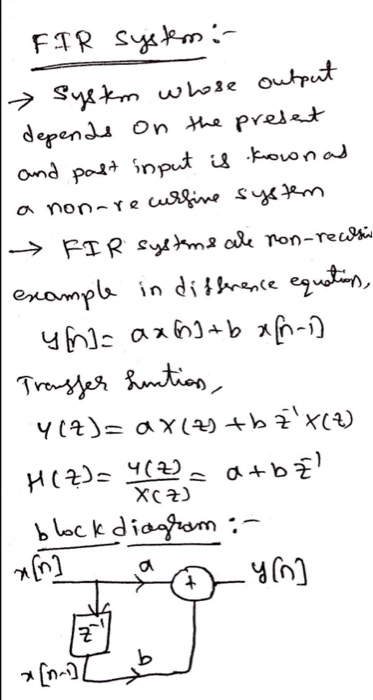 FIR System:-
→ System whose output
depends on the present
and past input is known as
a non-recursive system
→ FIR systems are non-recursi
example in difference equation,
y[n]= ax[n]+b x[n-1]
Transfer function,
Y(z)= aX(z)+b z⁻¹X(z)
H(z)= Y(z)/X(z) = a+bz⁻¹
block diagram:-
x[n] a + y[n]
z⁻¹
x[n-1] b